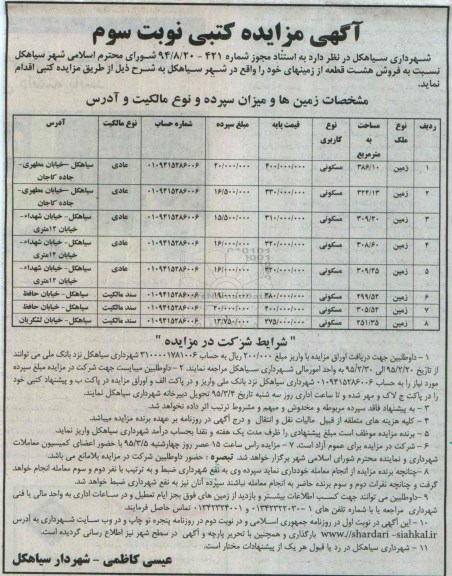 آگهی مزایده کتبی نوبت سوم
شهرداری سیاهکل در نظر دارد به استناد مجوز شماره ۴۲۱ - ۹۴/۸/۲۰ شورای محترم اسلامی شهر سیاهکل
نسبت به فروش هشت قطعه از زمینهای خود را واقع در شهر سیاهکل به شرح ذیل از طریق مزایده کتبی اقدام
نماید.
مشخصات زمین ها و میزان سپرده و نوع مالکیت و آدرس
ردیف نوع ملک مساحت به مترمربع نوع کاربری قیمت پایه مبلغ سپرده شماره حساب نوع مالکیت آدرس
۱ زمین ۳۸۶/۱۰ مسکونی ۴۰۰/۰۰۰/۰۰۰ ۲۰/۰۰۰/۰۰۰ ۰۱۰۹۴۱۵۲۸۶۰۰۶ عادی سیاهکل -خیابان مطهری- جاده کاجان
۲ زمین ۳۲۴/۱۳ مسکونی ۳۳۰/۰۰۰/۰۰۰ ۱۶/۵۰۰/۰۰۰ ۰۱۰۹۴۱۵۲۸۶۰۰۶ عادی سیاهکل -خیابان مطهری- جاده کاجان
۳ زمین ۳۰۹/۲۰ مسکونی ۳۱۰/۰۰۰/۰۰۰ ۱۵/۵۰۰/۰۰۰ ۰۱۰۹۴۱۵۲۸۶۰۰۶ عادی سیاهکل- خیابان شهداء- خیابان ۱۲متری
۴ زمین ۳۰۸/۶۰ مسکونی ۳۲۰/۰۰۰/۰۰۰ ۱۶/۰۰۰/۰۰۰ ۰۱۰۹۴۱۵۲۸۶۰۰۶ عادی سیاهکل- خیابان شهداء- خیابان ۱۲متری
۵ زمین ۳۰۹/۲۵ مسکونی ۳۲۰/۰۰۰/۰۰۰ ۱۶/۰۰۰/۰۰۰ ۰۱۰۹۴۱۵۲۸۶۰۰۶ عادی سیاهکل- خیابان شهداء- خیابان ۱۲متری
۶ زمین ۲۹۹/۵۲ مسکونی ۳۸۰/۰۰۰/۰۰۰ ۱۹/۰۰۰/۰۰۰ ۰۱۰۹۴۱۵۲۸۶۰۰۶ سند مالکیت سیاهکل- خیابان حافظ
۷ زمین ۳۰۵/۵۲ مسکونی ۴۰۰/۰۰۰/۰۰۰ ۲۰/۰۰۰/۰۰۰ ۰۱۰۹۴۱۵۲۸۶۰۰۶ سند مالکیت سیاهکل- خیابان حافظ
۸ زمین ۲۵۱/۳۵ مسکونی ۲۷۵/۰۰۰/۰۰۰ ۱۳/۷۵۰/۰۰۰ ۰۱۰۹۴۱۵۲۸۶۰۰۶ سند مالکیت سیاهکل- خیابان لشگریان
" شرایط شرکت در مزایده "
۱ - داوطلبین جهت دریافت اوراق مزایده با واریز مبلغ ۲۰۰/۰۰۰ ریال به حساب ۳۱۰۰۰۰۱۷۸۱۰۰۶ شهرداری سیاهکل نزد بانک ملی می توانند
از تاریخ ۹۵/۲/۲۰ الی ۹۵/۲/۳۰ به واحد امورمالی شهرداری سیاهکل مراجعه نمایند. ۲ - داوطلبین میبایست جهت شرکت در مزایده مبلغ سپرده
مورد نیاز را به حساب ۰۱۰۹۴۱۵۲۸۶۰۰۶ شهرداری سیاهکل نزد بانک ملی واریز و در پاکت الف و اوراق مزایده در پاکت ب و پیشنهاد کتبی خود
را در پاکت ج لاک و مهر شده و تا ساعت اداری روز سه شنبه تاریخ ۹۵/۳/۴ تحویل دبیرخانه شهرداری سیاهکل نمایند.
۳ - به پیشنهاد فاقد سپرده مربوطه و مخدوش و مبهم و مشروط ترتیب اثر داده نخواهد شد.
۴ - کلیه هزینه های متعلقه از قبیل مالیات نقل و انتقال و درج آگهی در روزنامه بر عهده برنده مزایده میباشد.
۵ - برنده مزایده موظف است مبلغ پیشنهادی را ظرف مدت یک هفته و نقدا بحساب درآمد شهرداری سیاهکل واریز نماید.
۶ - شرکت در مزایده برای عموم آزاد است. ۷ - مزایده راس ساعت ۱۵ عصر روز چهارشنبه ۹۵/۳/۵ با حضور اعضای کمیسیون معاملات
شهرداری و نماینده محترم شورای اسلامی شهر برگزار خواهد شد. تبصره : حضور داوطلبین شرکت در مزایده بلامانع می باشد.
۸ -چنانچه برنده مزایده از انجام معامله خودداری نماید سپرده وی به نفع شهرداری ضبط و به ترتیب با نفر دوم و سوم معامله انجام خواهد
گرفت و چنانچه نفرات دوم و سوم برنده حاضر به انجام معامله نباشند سپرده آنان نیز به نفع شهرداری ضبط خواهد شد.
۹ -داوطلبین می توانند جهت کسب اطلاعات بیشتر و بازدید از زمین های فوق بجز ایام تعطیل و در ساعات اداری به واحد مالی یا فنی
شهرداری مراجعه یا با شماره تلفن های ۱ - ۰۱۳۴۲۳۲۲۰۳۰ و ۰۱۳۴۲۳۲۴۰۰۱ تماس حاصل فرمایند.
۱۰ - این آگهی در نوبت اول در روزنامه جمهوری اسلامی و در نوبت دوم در روزنامه پنجره نو چاپ و در وب سایت شهرداری به آدرس
www://shardari -siahkal.ir بارگذاری و همچنین با تحریر پارچه و آگهی در سطح شهر نیز اطلاع رسانی گردیده است.
۱۱ - شهرداری سیاهکل در رد یا قبول هر یک از پیشنهادات مختار است.
عیسی کاظمی - شهردار سیاهکل